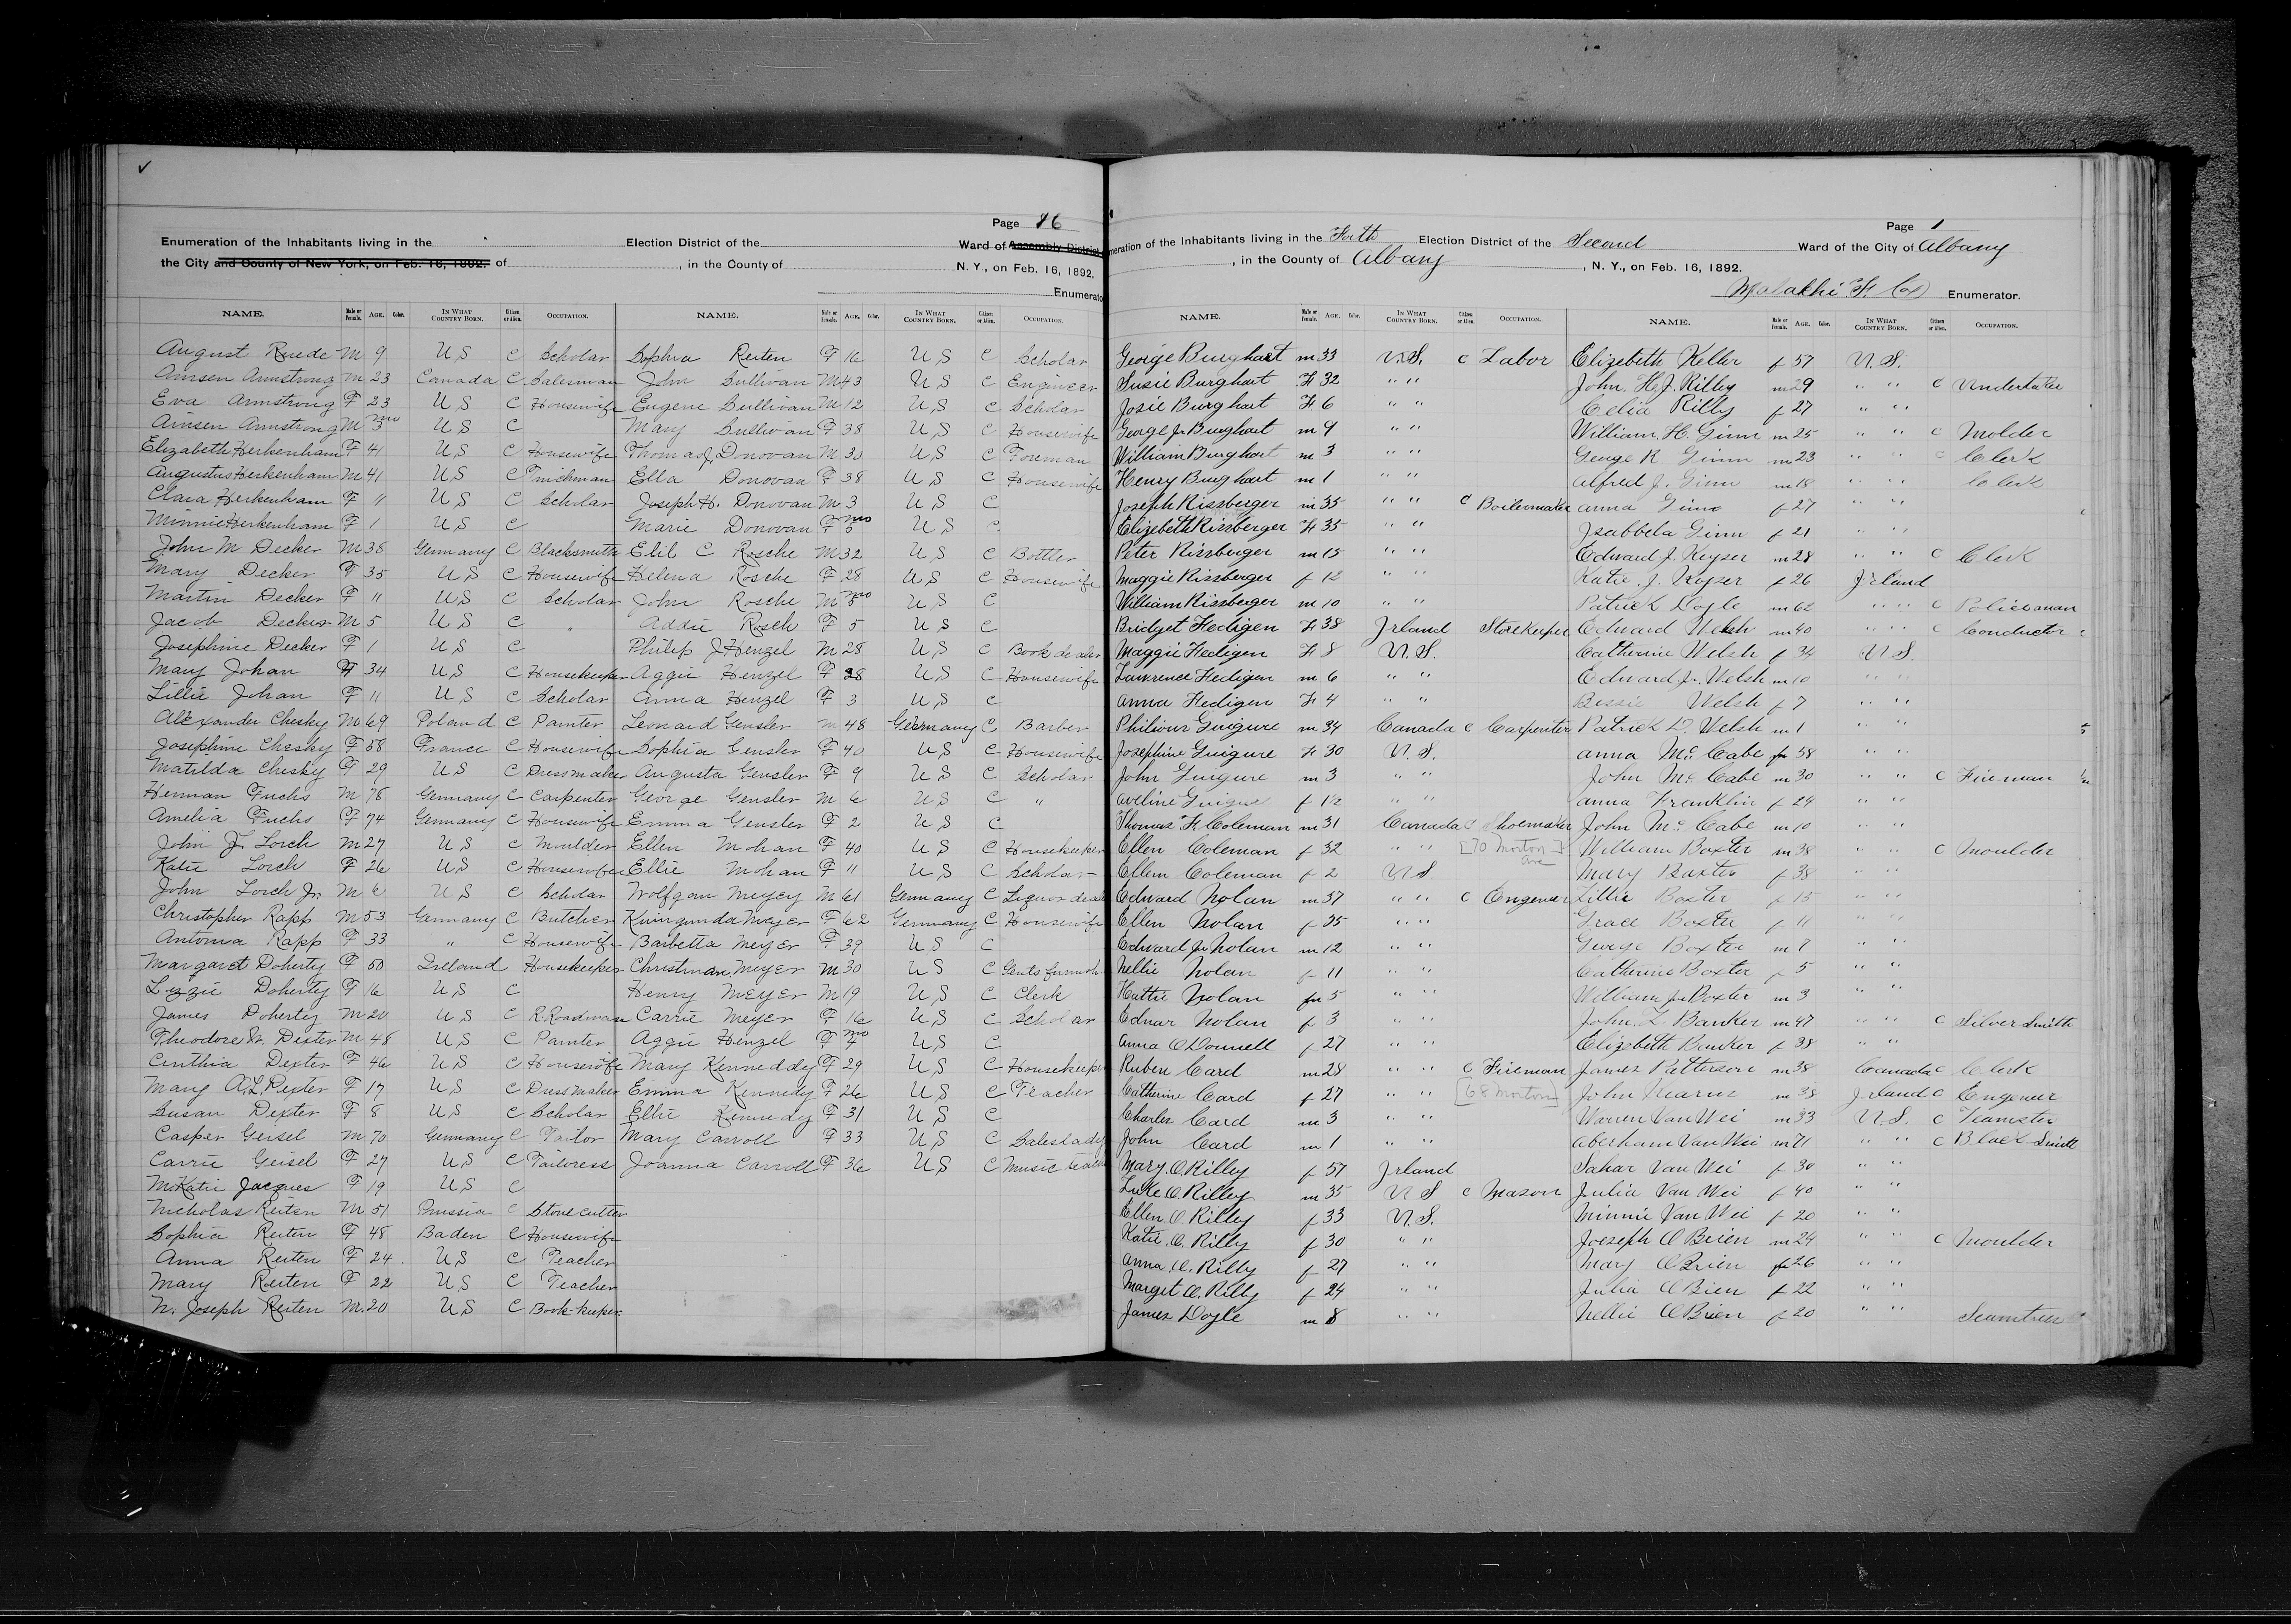 Page 16
Enumeration of the Inhabitants living in the Election District of the Ward of Assembly District
the City and County of New York, on Feb. 16, 1892. of , in the County of N. Y., on Feb. 16, 1892,
Enumerato
NAME. Male or Female. AGE. Color. IN WHAT COUNTRY BORN. Citizen or Alien. OCCUPATION. NAME. Male or Female. AGE. Color. IN WHAT COUNTRY BORN. Citizen or Alien. OCCUPATION.
August Ruede M 9 U S C Scholar
Amsen Armstrong M 23 Canada C Salesman
Eva Armstrong F 23 U S C Housewife
Ainsen Armstrong M 3 mo U S C
Elizabeth Herkenham F 41 U S C Housewife
Augustus Herkenham M 41 U S C Truckman
Clara Herkenham F 11 U S C Scholar
Minnie Herkenham F 1 U S C
John M Decker M 38 Germany C Blacksmith
Mary Decker F 35 U S C Housewife
Martin Decker F 11 U S C Scholar
Jacob Decker M 5 U S C "
Josephine Decker F 1 U S C
Mary Johan F 34 U S C Housekeeper
Lillie Johan F 11 U S C Scholar
Alexander Chesky M 69 Poland C Painter
Josephine Chesky F 58 France C Housewife
Matilda Chesky F 29 U S C Dressmaker
Herman Fuchs M 78 Germany C Carpenter
Amelia Fuchs F 74 Germany C Housewife
John J. Lorch M 27 U S C Moulder
Katie Lorch F 26 U S C Housewife
John Lorch Jr. M 6 U S C Scholar
Christopher Rapp M 53 Germany C Butcher
Antonia Rapp F 33 " C Housewife
Margaret Doherty F 50 Ireland Housekeeper
Lizzie Doherty F 16 U S C
James Doherty M 20 U S C R. Roadman
Theodore W. Dexter M 48 U S C Painter
Cinthia Dexter F 46 U S C Housewife
Mary A. L. Dexter F 17 U S C Dressmaker
Susan Dexter F 8 U S C Scholar
Casper Geisel M 70 Germany C Tailor
Carrie Geisel F 27 U S C Tailoress
M. Katie Jacques F 19 U S C
Nicholas Reiten M 51 Prussia C Stone cutter
Sophia Reiten F 48 Baden C Housewife
Anna Reiten F 24 U S C Teacher
Mary Reiten F 22 U S C Teacher
N. Joseph Reiten M. 20 U S C Book-keeper.
Sophia Reiten F 16 U S C Scholar
John Sullivan M 43 U S C Engineer
Eugene Sullivan M 12 U S C Scholar
Mary Sullivan F 38 U S C Housewife
Thomas J. Donovan M 30 U S C Foreman
Ella Donovan F 38 U S C Housewife
Joseph H. Donovan M 3 U S C
Marie Donovan F 5 mo U S C
C Rosche M 32 U S C Bottler
Helena Rosche F 28 U S C Housewife
John Rosche M 8 mo U S C
Addie Rosch F 5 U S C
Philip J Henzel M 28 U S C Book dealer
Aggie Henzel F 28 U S C Housewife
Anna Henzel F 3 U S C
Leonard Gensler M 48 Germany C Barber
Sophia Gensler F 40 U S C Housewife
Augusta Gensler F 9 U S C Scholar
George Gensler M 6 U S C "
Emma Gensler F 2 U S C
Ellen Mohan F 40 U S C Housekeeper
Ellie Mohan F 11 U S C Scholar
Wolfgom Meyey M 61 Germany C Liquor deal
Kuingunda Meyer F 62 Germany C Housewife
Barbetta Meyer F 39 U S C
Christman Meyer M 30 U S C Gents furnish
Henry Meyer M 19 U S C Clerk
Carrie Meyer F 16 U S C Scholar
Aggie Henzel F 4 mo U S C
Mary Kenneddy F 29 U S C Housekeeper
Emma Kennedy F 26 U S C Teacher
Ellie Kennedy F 31 U S C
Mary Carroll F 33 U S C Saleslady
Joanna Carroll F 36 U S C Music teach
Page 1
meration of the Inhabitants living in the Forth Election District of the Second Ward of the City of Albany
, in the County of Albany , N. Y., on Feb. 16, 1892.
Malakhi F. Enumerator.
NAME. Male or Female. AGE. Color. IN WHAT COUNTRY BORN. Citizen or Alien. OCCUPATION. NAME. Male or Female. AGE. Color. IN WHAT COUNTRY BORN. Citizen or Alien. OCCUPATION.
George Burghart m 33 U.S. C Labor
Susie Burghart F 32 " "
Josie Burghart F 6 " "
George Jr Burghart m 9 " "
William Burghart m 3 " "
Henry Burghart m 1 " "
Joseph Rissberger m 35 " " C Boilermaker
Elizebeth Rissberger F 35 " "
Peter Rissberger m 15 " "
Maggie Rissberger f 12 " "
William Rissberger m 10 " "
Bridget Hedigen F 38 Jrland Storekeeper
Maggie Hedigen F 8 U.S.
Lawrence Hedigen m 6 " "
Anna Hedigen F 4 " "
Guigure m 34 Canada C Carpenter
Josephine Guigure F 30 U.S.
John Guigure m 3 " "
Aveline Guigure f 1/2 " "
Thomas F. Coleman m 31 Canada C Shoemaker
Ellen Coleman f 32 " " [70 Morton Ave]
Ellen Coleman f 2 U S
Edward Nolan m 37 " " C Engeneer
Ellen Nolan f 35 " "
Edward Jr Nolan m 12 " "
Nellie Nolan f 11 " "
Hattie Nolan f 5 " "
Ednar Nolan f 3 " "
Anna ODonnell f 27 " "
Ruben Card m 28 " " C Fireman
Catherine Card f 27 " " [68 Morton]
Charles Card m 3 " "
John Card m 1 " "
Mary O Rilley f 57 Jrland
Luke O. Rilley m 35 U S C Mason
Ellen O. Rilley f 33 U.S.
Katie O. Rilly f 30 " "
Anna O. Rilly f 27 " "
Marget O. Rilly f 24 " "
James Doyle m 8 " "
Elizebeth Keller f 57 U.S.
John H.J. Rilley m 29 " " C Undertaker
Celia Rilly f 27 " "
William H. Ginn m 25 " " C Molder
George R Ginn m 23 " " C Clerk
Alfred J. Ginn m 18 " " Clerk
Anna Ginn f 27 " "
Jsabbela Ginn f 21 " "
Edward J. Keyser m 28 " " C Clerk
Katie J. Keyser f 26 Jrland
Patrick Doyle m 62 " " C Policeaman
Edward Welsh m 40 " " C Conductor
Catherine Welsh f 34 U S.
Edward Jr. Welsh m 10 " "
Bessie Welsh f 7 " "
Patrick D. Welsh m 1 " "
Anna McCabe f 58 " "
John McCabe m 30 " " C Fireman
Anna Franklin f 24 " "
John McCabe m 10 " "
William Boxter m 38 " " C Moulder
Mary Baxter f 38 " "
Lillie Boxter f 15 " "
Grace Boxter f 11 " "
George Boxter m 7 " "
Catherine Boxter f 5 " "
William Jr Boxter m 3 " "
John L Banker m 47 " " C Silver Smith
Elizebeth Banker f 38 " "
James Pattersore m 38 Canada C Clerk
John Kearns m 38 Jrland C Engeneer
Warren Van Wei m 33 U.S. C Teamster
Aberham Van Wei m 71 " " C Black Smith
Sahar Van Wei f 30 " "
Julia Van Wei f 40 " "
Minnie Van Wei f 20 " "
Joeseph O Brien m 24 " " C Moulder
Mary O Brien f 26 " "
Julia O Bien f 22 " "
Nellie O Brien f 20 " " Seamtress